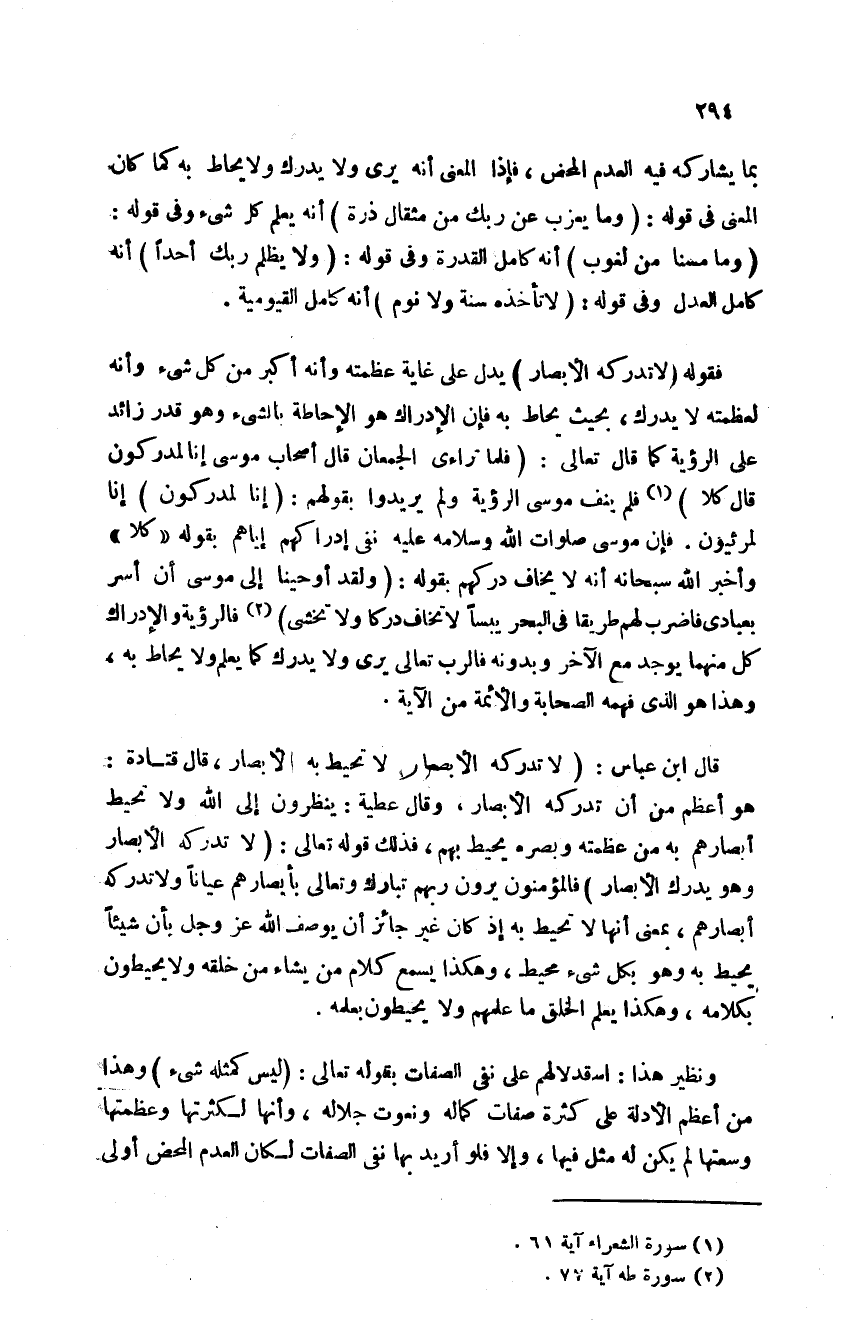 ٢٩٤
بما يشاركه فيه العدم المحض ، فإذا المعنى أنه يرى ولا يدرك ولا يحاط به كما كان
المعنى فى قوله : ( وما يعزب عن ربك من مثقال ذرة ) أنه يعلم كل شىء وفى قوله :
( وما مسنا من لغوب ) أنه كامل القدرة وفى قوله : ( ولا يظلم ربك أحداً ) أنه
كامل العدل وفى قوله : ( لا تأخذه سنة ولا نوم ) أنه كامل القيومية .
فقوله ( لا تدركه الأبصار ) يدل على غاية عظمته وأنه أكبر من كل شىء وأنه
لعظمته لا يدرك ، بحيث يحاط به فإن الإدراك هو الإحاطة بالشىء وهو قدر زائد
على الرؤية كما قال تعالى : ( فلما تراءى الجمعان قال أصحاب موسى إنا لمدركون
قال كلا ) (١) فلم ينف موسى الرؤية ولم يريدوا بقولهم : ( إنا لمدركون ) إنا
لمرئيون . فإن موسى صلوات الله وسلامه عليه نفى إدراكهم إياهم بقوله « كلا »
وأخبر الله سبحانه أنه لا يخاف دركهم بقوله : ( ولقد أوحينا إلى موسى أن أسر
بعبادى فاضرب لهم طريقا فى البحر يبساً لا تخاف دركا ولا تخشى ) (٢) فالرؤية والإدراك
كل منهما يوجد مع الآخر وبدونه فالرب تعالى يرى ولا يدرك كما يعلم ولا يحاط به ،
وهذا هو الذى فهمه الصحابة والأئمة من الآية .
قال ابن عباس : ( لا تدركه الأبصار ) لا تحيط به الأبصار ، قال قتادة :
هو أعظم من أن تدركه الأبصار ، وقال عطية : ينظرون إلى الله ولا تحيط
أبصارهم به من عظمته وبصره يحيط بهم ، فذلك قوله تعالى : ( لا تدركه الأبصار
وهو يدرك الأبصار ) فالمؤمنون يرون ربهم تبارك وتعالى بأبصارهم عياناً ولا تدركه
أبصارهم ، بمعنى أنها لا تحيط به إذ كان غير جائز أن يوصف الله عز وجل بأن شيئاً
يحيط به وهو بكل شىء محيط ، وهكذا يسمع كلام من يشاء من خلقه ولا يحيطون
بكلامه ، وهكذا يعلم الخلق ما علمهم ولا يحيطون بعلمه .
ونظير هذا : استدلالهم على نفى الصفات بقوله تعالى : ( ليس كمثله شىء ) وهذا
من أعظم الأدلة على كثرة صفات كماله ونعوت جلاله ، وأنها لكثرتها وعظمتها
وسعتها لم يكن له مثل فيها ، وإلا فلو أريد بها نفى الصفات لكان العدم المحض أولى
(١) سورة الشعراء آية ٦١ .
(٢) سورة طه آية ٧٧ .